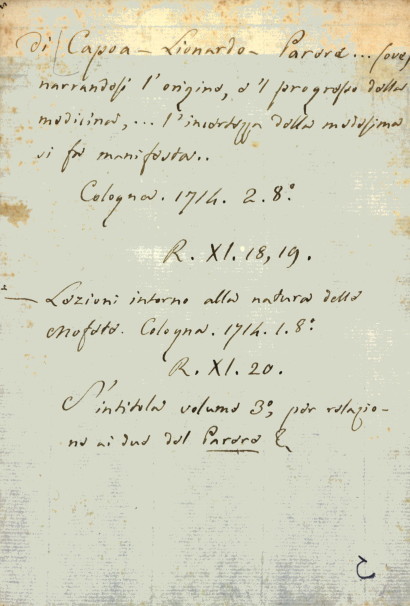 Di Capoa – Lionardo – Parere... (ove)
narrandosi l'origine, e 'l progresso della
medicina,... l'incertezza della medesima
si fa manifesta..
Cologna. 1714. 2. 8.º
R. XI. 18, 19.
— Lezioni intorno alla natura delle
Mofete. Cologna. 1714. 1. 8.º
R. XI. 20.
S'intitola volume 3º, per relazio-
ne ai due del Parere